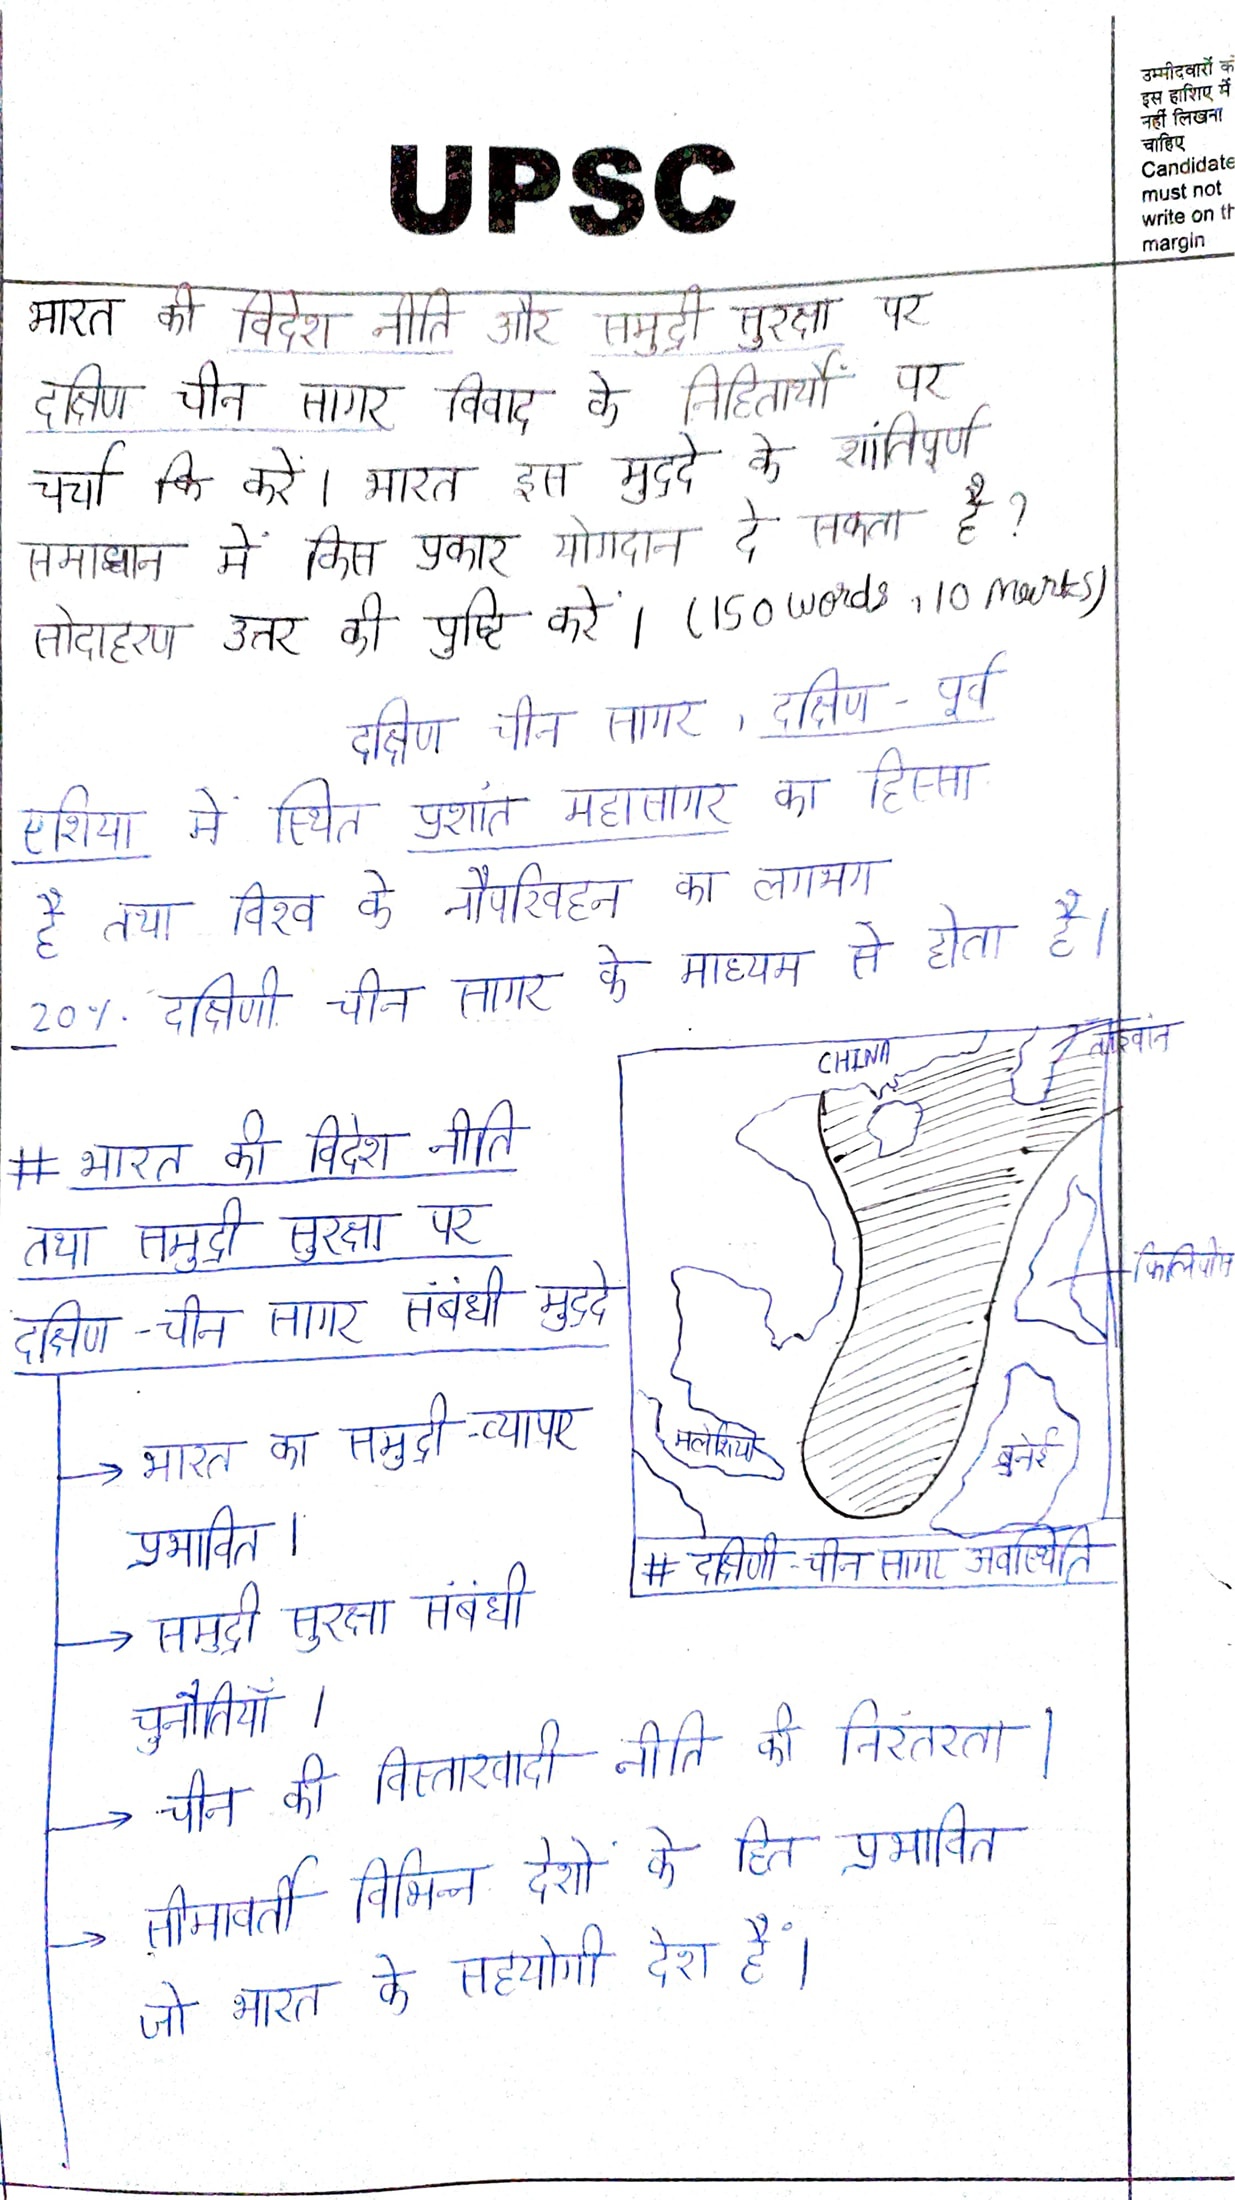 उम्मीदवारों को
इस हाशिए में
नहीं लिखना
चाहिए
Candidate
must not
write on th
margin
UPSC
भारत की विदेश नीति और समुद्री सुरक्षा पर
दक्षिण चीन सागर विवाद के निहितार्थों पर
चर्चा कि करें। भारत इस मुद्दे के शांतिपूर्ण
समाधान में किस प्रकार योगदान दे सकता है?
सोदाहरण उत्तर की पुष्टि करें। (150 words, 10 marks)
दक्षिण चीन सागर, दक्षिण-पूर्व
एशिया में स्थित प्रशांत महासागर का हिस्सा
है तथा विश्व के नौपरिवहन का लगभग
20% दक्षिणी चीन सागर के माध्यम से होता है।
CHINA
ताइवान
फिलिपींस
मलेशिया
ब्रुनेई
# दक्षिणी-चीन सागर अवस्थिति
# भारत की विदेश नीति
तथा समुद्री सुरक्षा पर
दक्षिण-चीन सागर संबंधी मुद्दे
→ भारत का समुद्री-व्यापार
प्रभावित।
→ समुद्री सुरक्षा संबंधी
चुनौतियाँ।
→ चीन की विस्तारवादी नीति की निरंतरता।
→ सीमावर्ती विभिन्न देशों के हित प्रभावित
जो भारत के सहयोगी देश हैं।